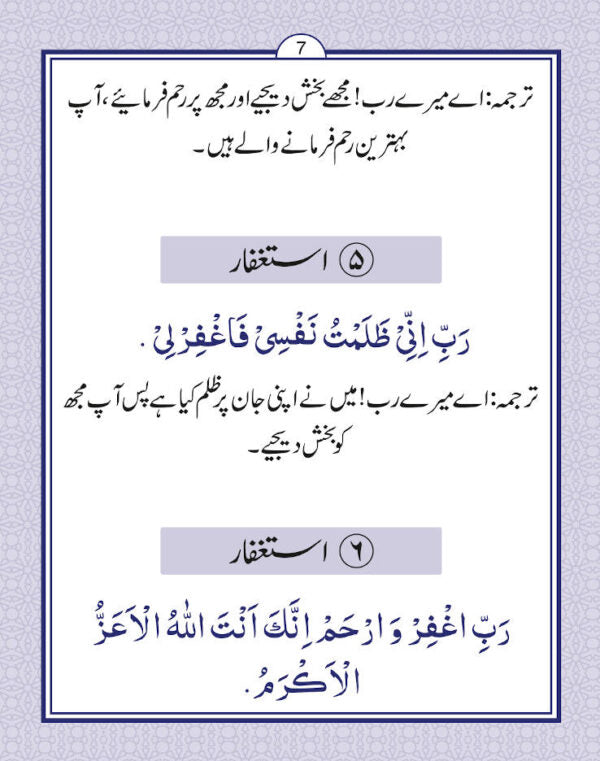 7
ترجمہ: اے میرے رب! مجھے بخش دیجیے اور مجھ پر رحم فرمائیے، آپ
بہترین رحم فرمانے والے ہیں۔
۵ استغفار
رَبِّ اِنِّیْ ظَلَمْتُ نَفْسِیْ فَاغْفِرْلِیْ .
ترجمہ: اے میرے رب! میں نے اپنی جان پر ظلم کیا ہے پس آپ مجھ
کو بخش دیجیے۔
۶ استغفار
رَبِّ اغْفِرْ وَارْحَمْ اِنَّكَ اَنْتَ اللّٰهُ الْاَعَزُّ
الْاَكْرَمُ .